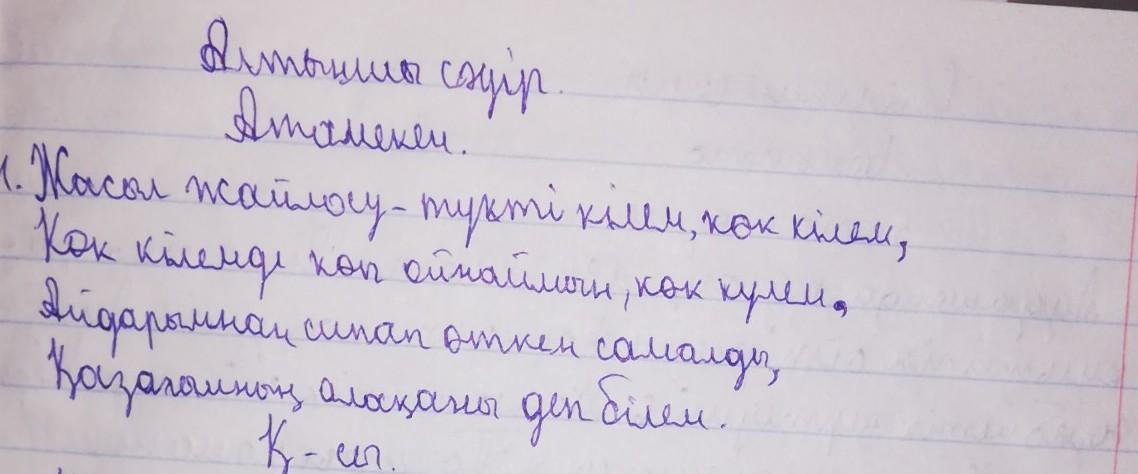 Алтыншы сәуір.
Атамекен.
1. Жасыл жайлау - түкті кілем, көк кілем,
Көк кілемде көп ойнаймын, көк күлем,
Айдарымнан сипап өткен самалды,
Қазағамның алақаны деп білем.
Қ-сы.